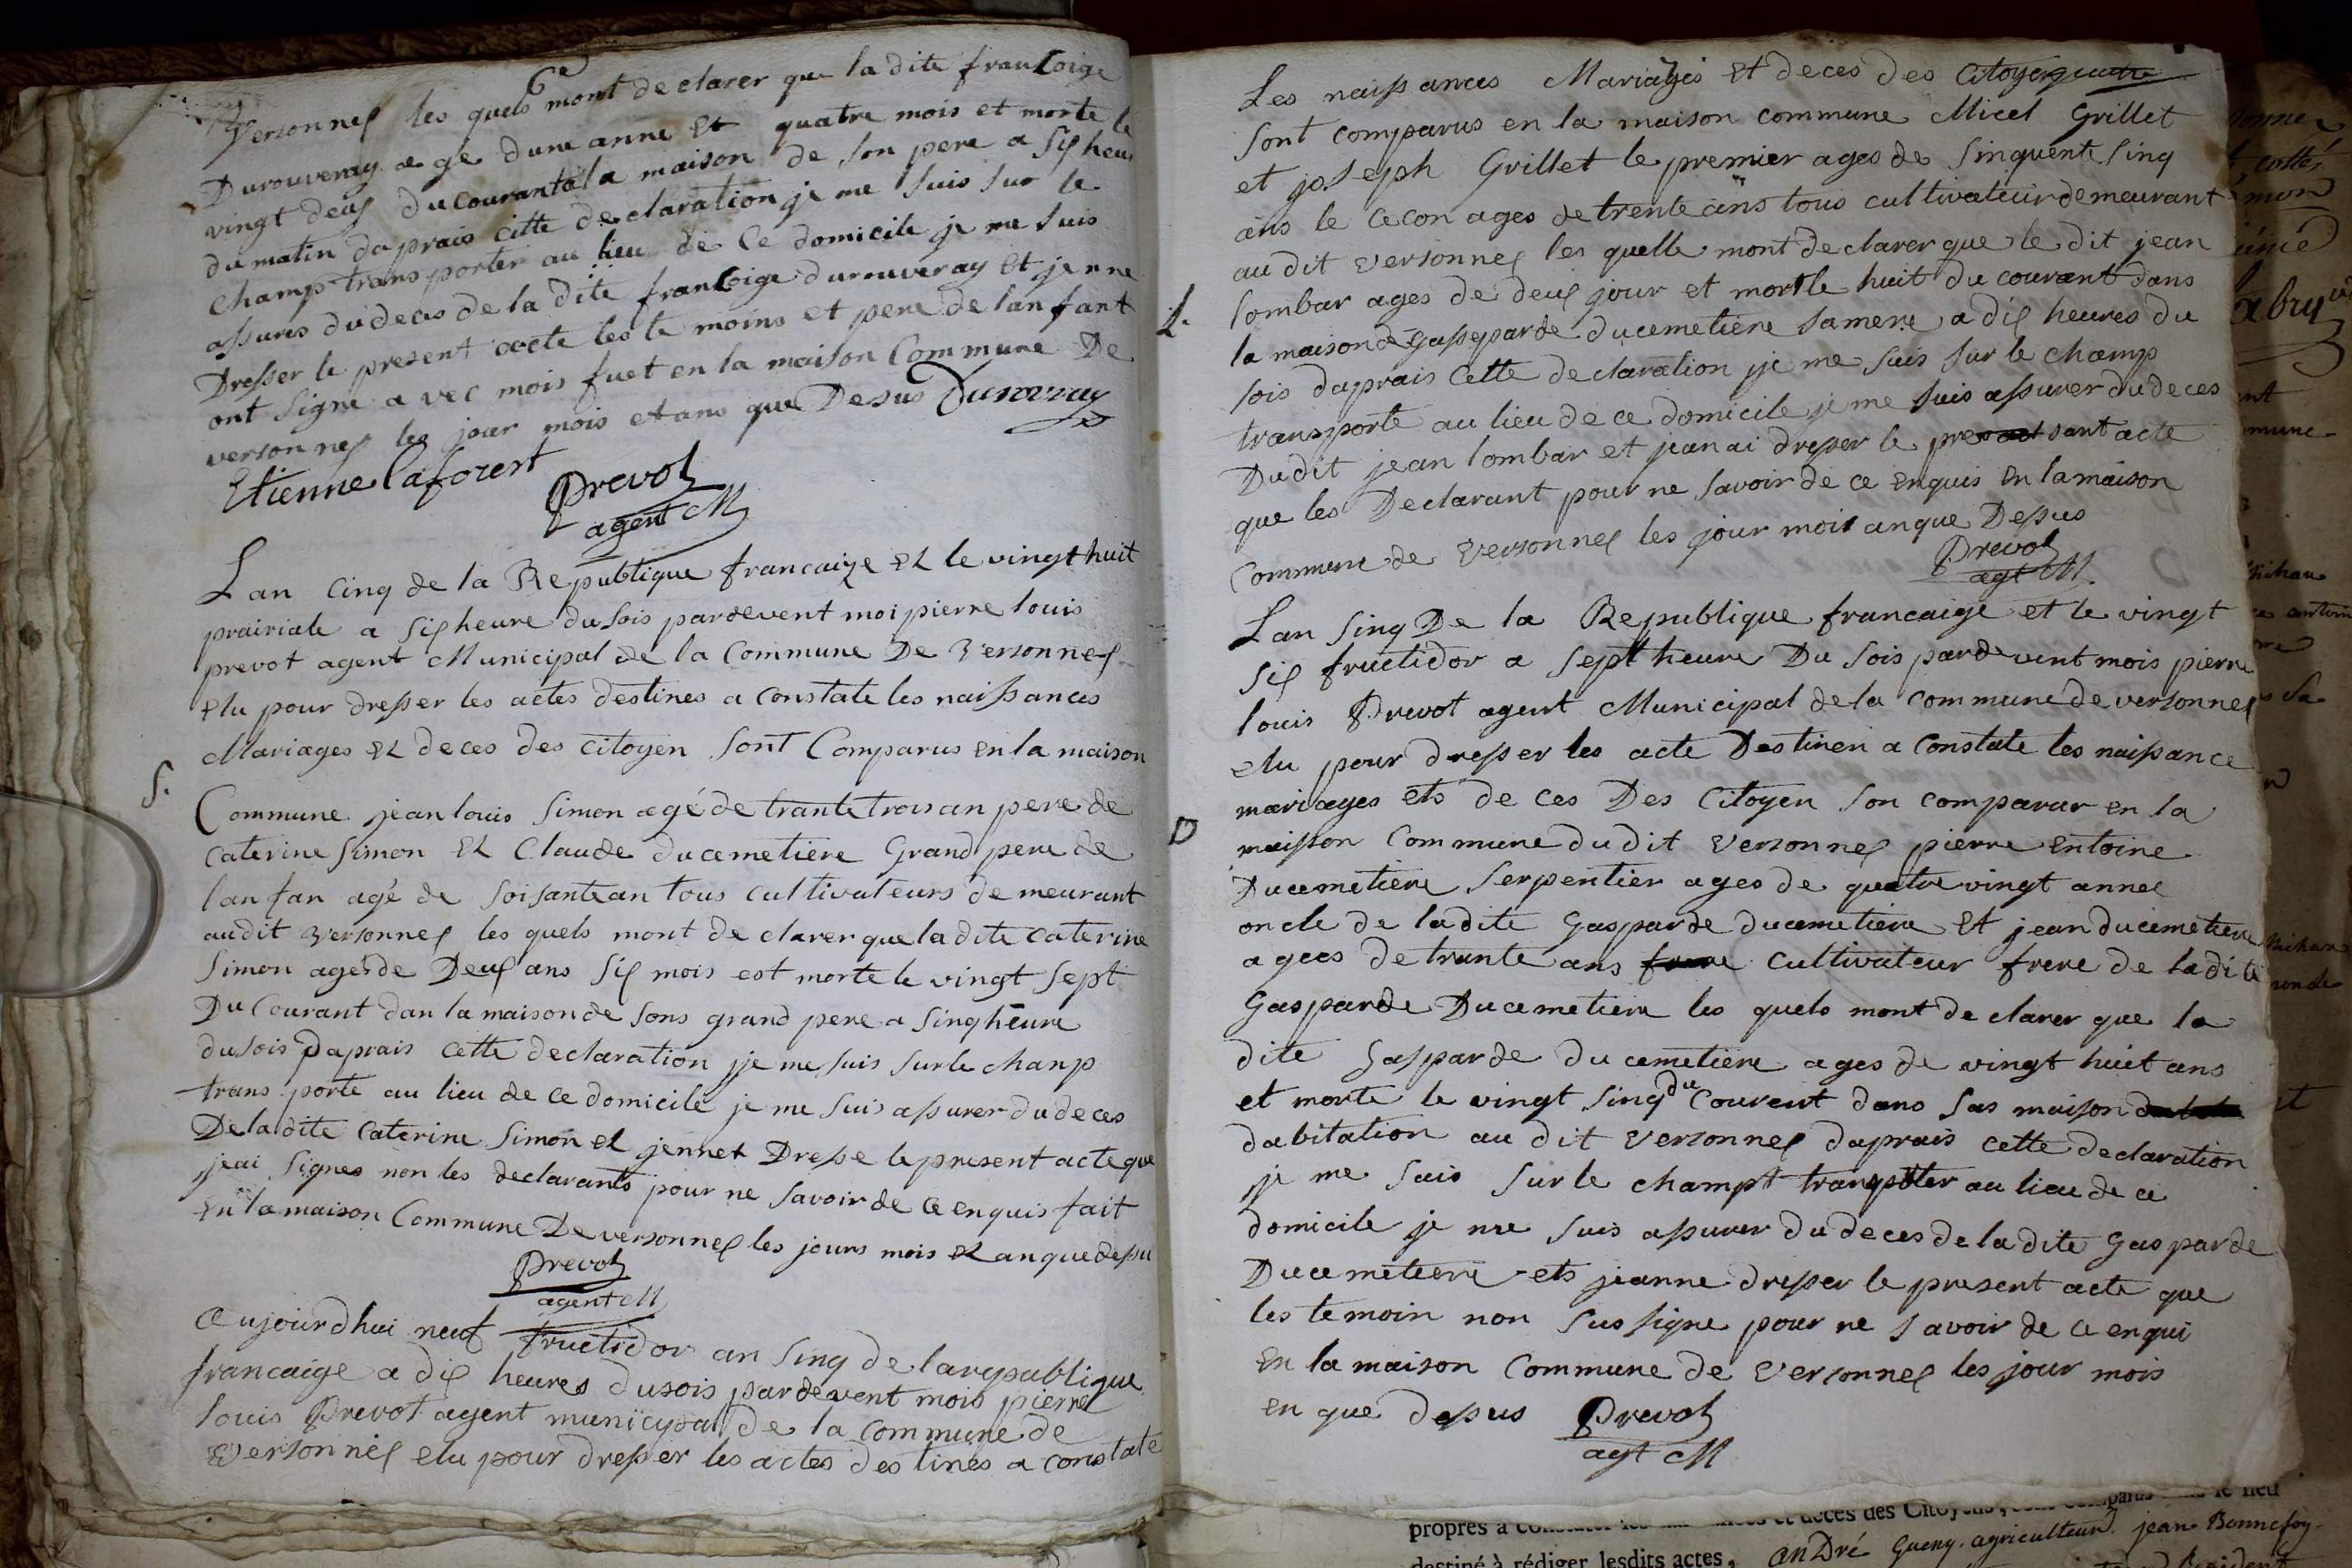 6e
Versonnex les quels mont declarer que la dite francoige
Durouveray age dune anne Et quatre mois et morte le
vingt deux du courant a la maison de son pere a six heur
du matin daprais citte declaration je me suis sur le
champ transporter au lieu de ce domicile je me suis
assures du deces de la dite francoige durouveray et jenne
Dresser le present acte les te moins et pere de lanfant
ont signe avec mois fuet en la maison Commune De
versonnex les jour mois et ans que Desus Durovray
Etienne laforest
Prevot
agent M
Lan Cinq de la Republique francaize Et le vingt huit
prairiale a six heure du sois pardevent moi pierre louis
prevot agent Municipal de la Commune De Versonnex
elu pour dresser les actes destines a constate les naissances
Mariages Et deces des Citoyen sont Comparus en la maison
S.
Commune jean louis Simon agé de trante trois an pere de
Caterine Simon Et Claude ducemetiere Grand pere de
lanfan agé de soisante an tous cultivateurs demeurant
audit Versonnex les quels mont declarer que la dite Caterine
Simon ages de Deux ans six mois est morte le vingt sept
Du Courant dan la maison de sons grand pere a sinq heure
du sois Daprais cette declaration je me suis sur le chanp
trans porte au lieu de ce domicile je me suis assurer du deces
De la dite Caterine Simon et jennet Dresse le present acte que
jeai signes non les declarants pour ne savoir de ce enquis fait
en la maison Commune De versonnex les jours mois et an que dessu
Prevot
agent M
Aujourdhui neuf fructidor an sinq de la republique
francaige a dix heures du sois pardevent mois pierre
louis Prevot agent municypal de la Commune de
Versonnex elu pour dresser les actes destinés a constate
Les naissances Mariages Et deces des Citoyens
sont comparus en la maison commune Micel Grillet
et joseph Grillet le premier ages de sinquente sinq
ans le cecon ages de trente ans tous cultivateur demeurant
au dit versonnex les quelle mont declarer que le dit jean
L.
lombar ages de deux jour et mort le huit du courant dans
la maison de Gasseparde ducemetiere samere a dix heures du
sois daprais Cette declaration je me suis sur le champ
transporte au lieu de ce domicile je me suis assurer du deces
Dudit jean lombar et jean ai dresser le presant acte
que les Declarant pour ne savoir de ce enquis En la maison
Commune de Versonnex les jour mois an que Dessus
Prevot
agt M.
Lan sinq De la Republique francaige et le vingt
six fructidor a sept heure Du sois pardevent mois pierre
louis Prevot agent Municipal de la Commune de versonnex
elu pour dresser les acte Destinen a constate les naissance
mariages ets de ces Des Citoyen son comparar en la
D
maisson Commune dudit Versonnex pierre entoine
Ducemetiere serpentier ages de quatre vingt annes
oncle de ladite Gasparde ducemetiere Et jean ducemetiere
agees de trante ans frere cultivateur frere de la dite
Gasparde Ducemetiere les quels mont declarer que la
dite Gasparde ducemetiere ages de vingt huit ans
et morte le vingt sinq du Courent dans sas maison
dabitation au dit versonnex daprais cette declaration
je me suis sur le champt transpotter au lieu de ce
domicile je me suis assurer du deces de la dite Gasparde
Ducemetiere ets jeanne dresser le present acte que
les temoin non sus signe pour ne savoir de ce enqui
En la maison Commune de Versonnex les jour mois
en que dessus Prevot
agt M
et deces des Citoyens
destiné à rédiger lesdits actes, andré Gueny agriculteur jean Bonnefoy